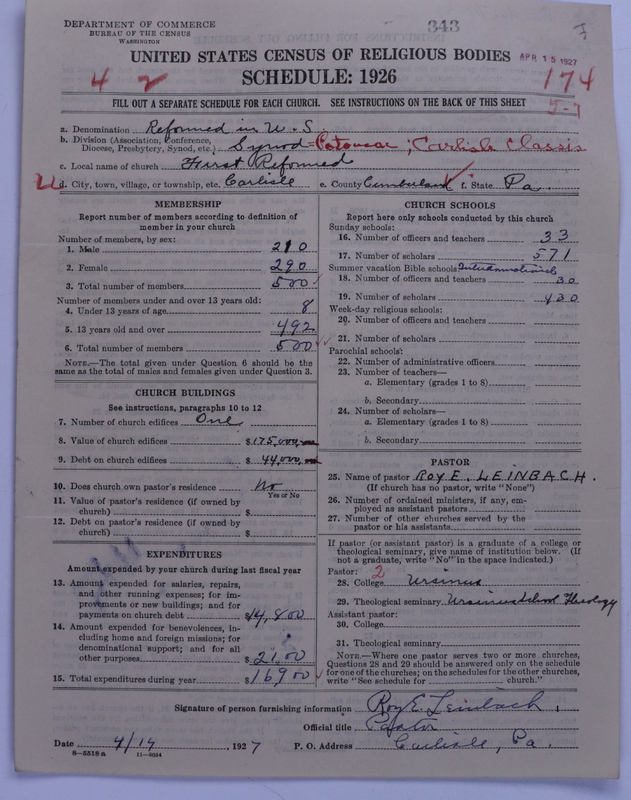 343
F
DEPARTMENT OF COMMERCE
BUREAU OF THE CENSUS
WASHINGTON
UNITED STATES CENSUS OF RELIGIOUS BODIES
APR 15 1927
4 2
SCHEDULE: 1926
174
FILL OUT A SEPARATE SCHEDULE FOR EACH CHURCH. SEE INSTRUCTIONS ON THE BACK OF THIS SHEET
5-7
a. Denomination Reformed in U.S.
b. Division (Association, Conference, Diocese, Presbytery, Synod, etc.) Synod = Potomac; Carlisle Classis
c. Local name of church First Reformed
d. City, town, village, or township, etc. Carlisle e. County Cumberland f. State Pa.
MEMBERSHIP
Report number of members according to definition of
member in your church
Number of members, by sex:
1. Male 210
2. Female 290
3. Total number of members 500
Number of members under and over 13 years old:
4. Under 13 years of age 8
5. 13 years old and over 492
6. Total number of members 500
NOTE.—The total given under Question 6 should be the
same as the total of males and females given under Question 3.
CHURCH BUILDINGS
See instructions, paragraphs 10 to 12
7. Number of church edifices One
8. Value of church edifices $175,000
9. Debt on church edifices $44,000
10. Does church own pastor's residence No
Yes or No
11. Value of pastor's residence (if owned by
church) $
12. Debt on pastor's residence (if owned by
church) $
EXPENDITURES
Amount expended by your church during last fiscal year
13. Amount expended for salaries, repairs,
and other running expenses; for im-
provements or new buildings; and for
payments on church debt $14,800
14. Amount expended for benevolences, in-
cluding home and foreign missions; for
denominational support; and for all
other purposes $2100
15. Total expenditures during year $16900
CHURCH SCHOOLS
Report here only schools conducted by this church
Sunday schools:
16. Number of officers and teachers 33
17. Number of scholars 571
Summer vacation Bible schools:
18. Number of officers and teachers 30
19. Number of scholars 430
Week-day religious schools:
20. Number of officers and teachers
21. Number of scholars
Parochial schools:
22. Number of administrative officers
23. Number of teachers—
a. Elementary (grades 1 to 8)
b. Secondary
24. Number of scholars—
a. Elementary (grades 1 to 8)
b. Secondary
PASTOR
25. Name of pastor ROY E. LEINBACH.
(If church has no pastor, write "None")
26. Number of ordained ministers, if any, em-
ployed as assistant pastors
27. Number of other churches served by the
pastor or his assistants
If pastor (or assistant pastor) is a graduate of a college or
theological seminary, give name of institution below. (If
not a graduate, write "No" in the space indicated.)
Pastor: 2
28. College Ursinus
29. Theological seminary Ursinus School Theology
Assistant pastor:
30. College
31. Theological seminary
NOTE.—Where one pastor serves two or more churches,
Questions 28 and 29 should be answered only on the schedule
for one of the churches; on the schedules for the other churches,
write "See schedule for church."
Signature of person furnishing information Roy E. Leinbach
Official title Pastor
Date 4/14, 1927 P. O. Address Carlisle, Pa.
8—5518 a 11—9034